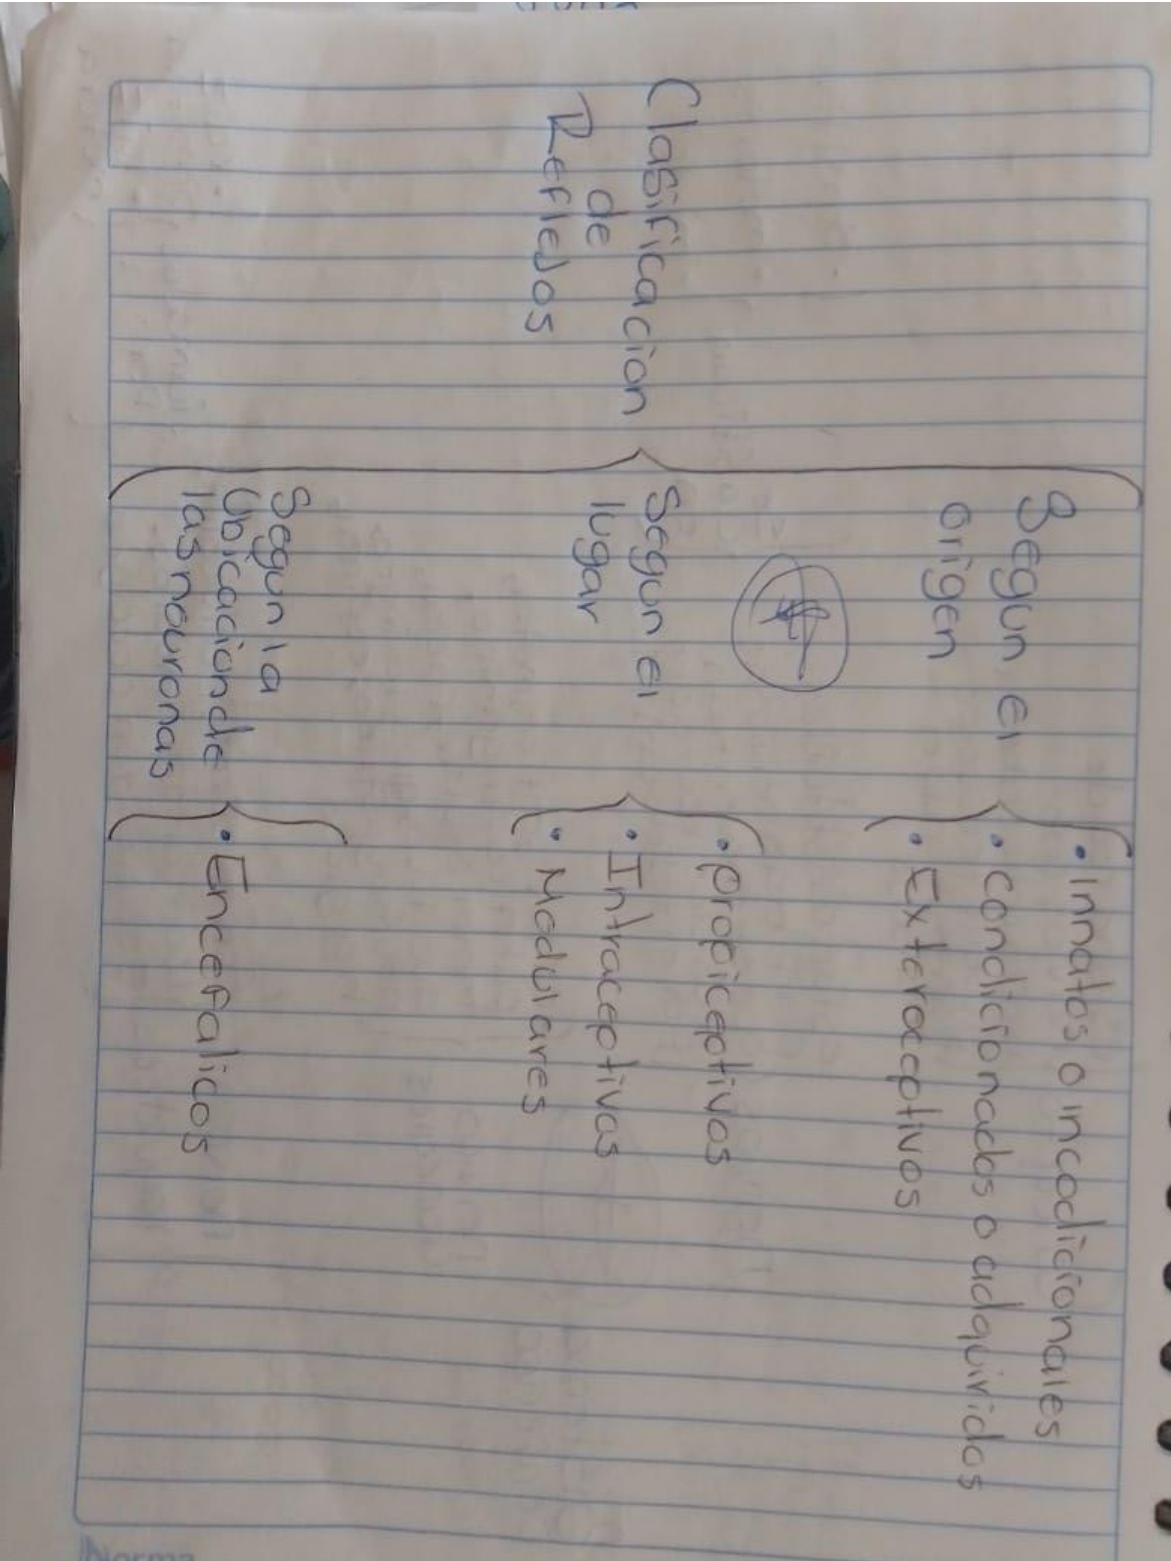 Clasificacion
de
Reflejos
Segun el
origen
• Innatos o incodicionales
• Condicionados o adquiridos
• Exteroceptivos
Segun el
lugar
• Propiceptivos
• Intraceptivas
• Modulares
Segun la
Ubicacion de
las neuronas
• Encefalicos
Norma